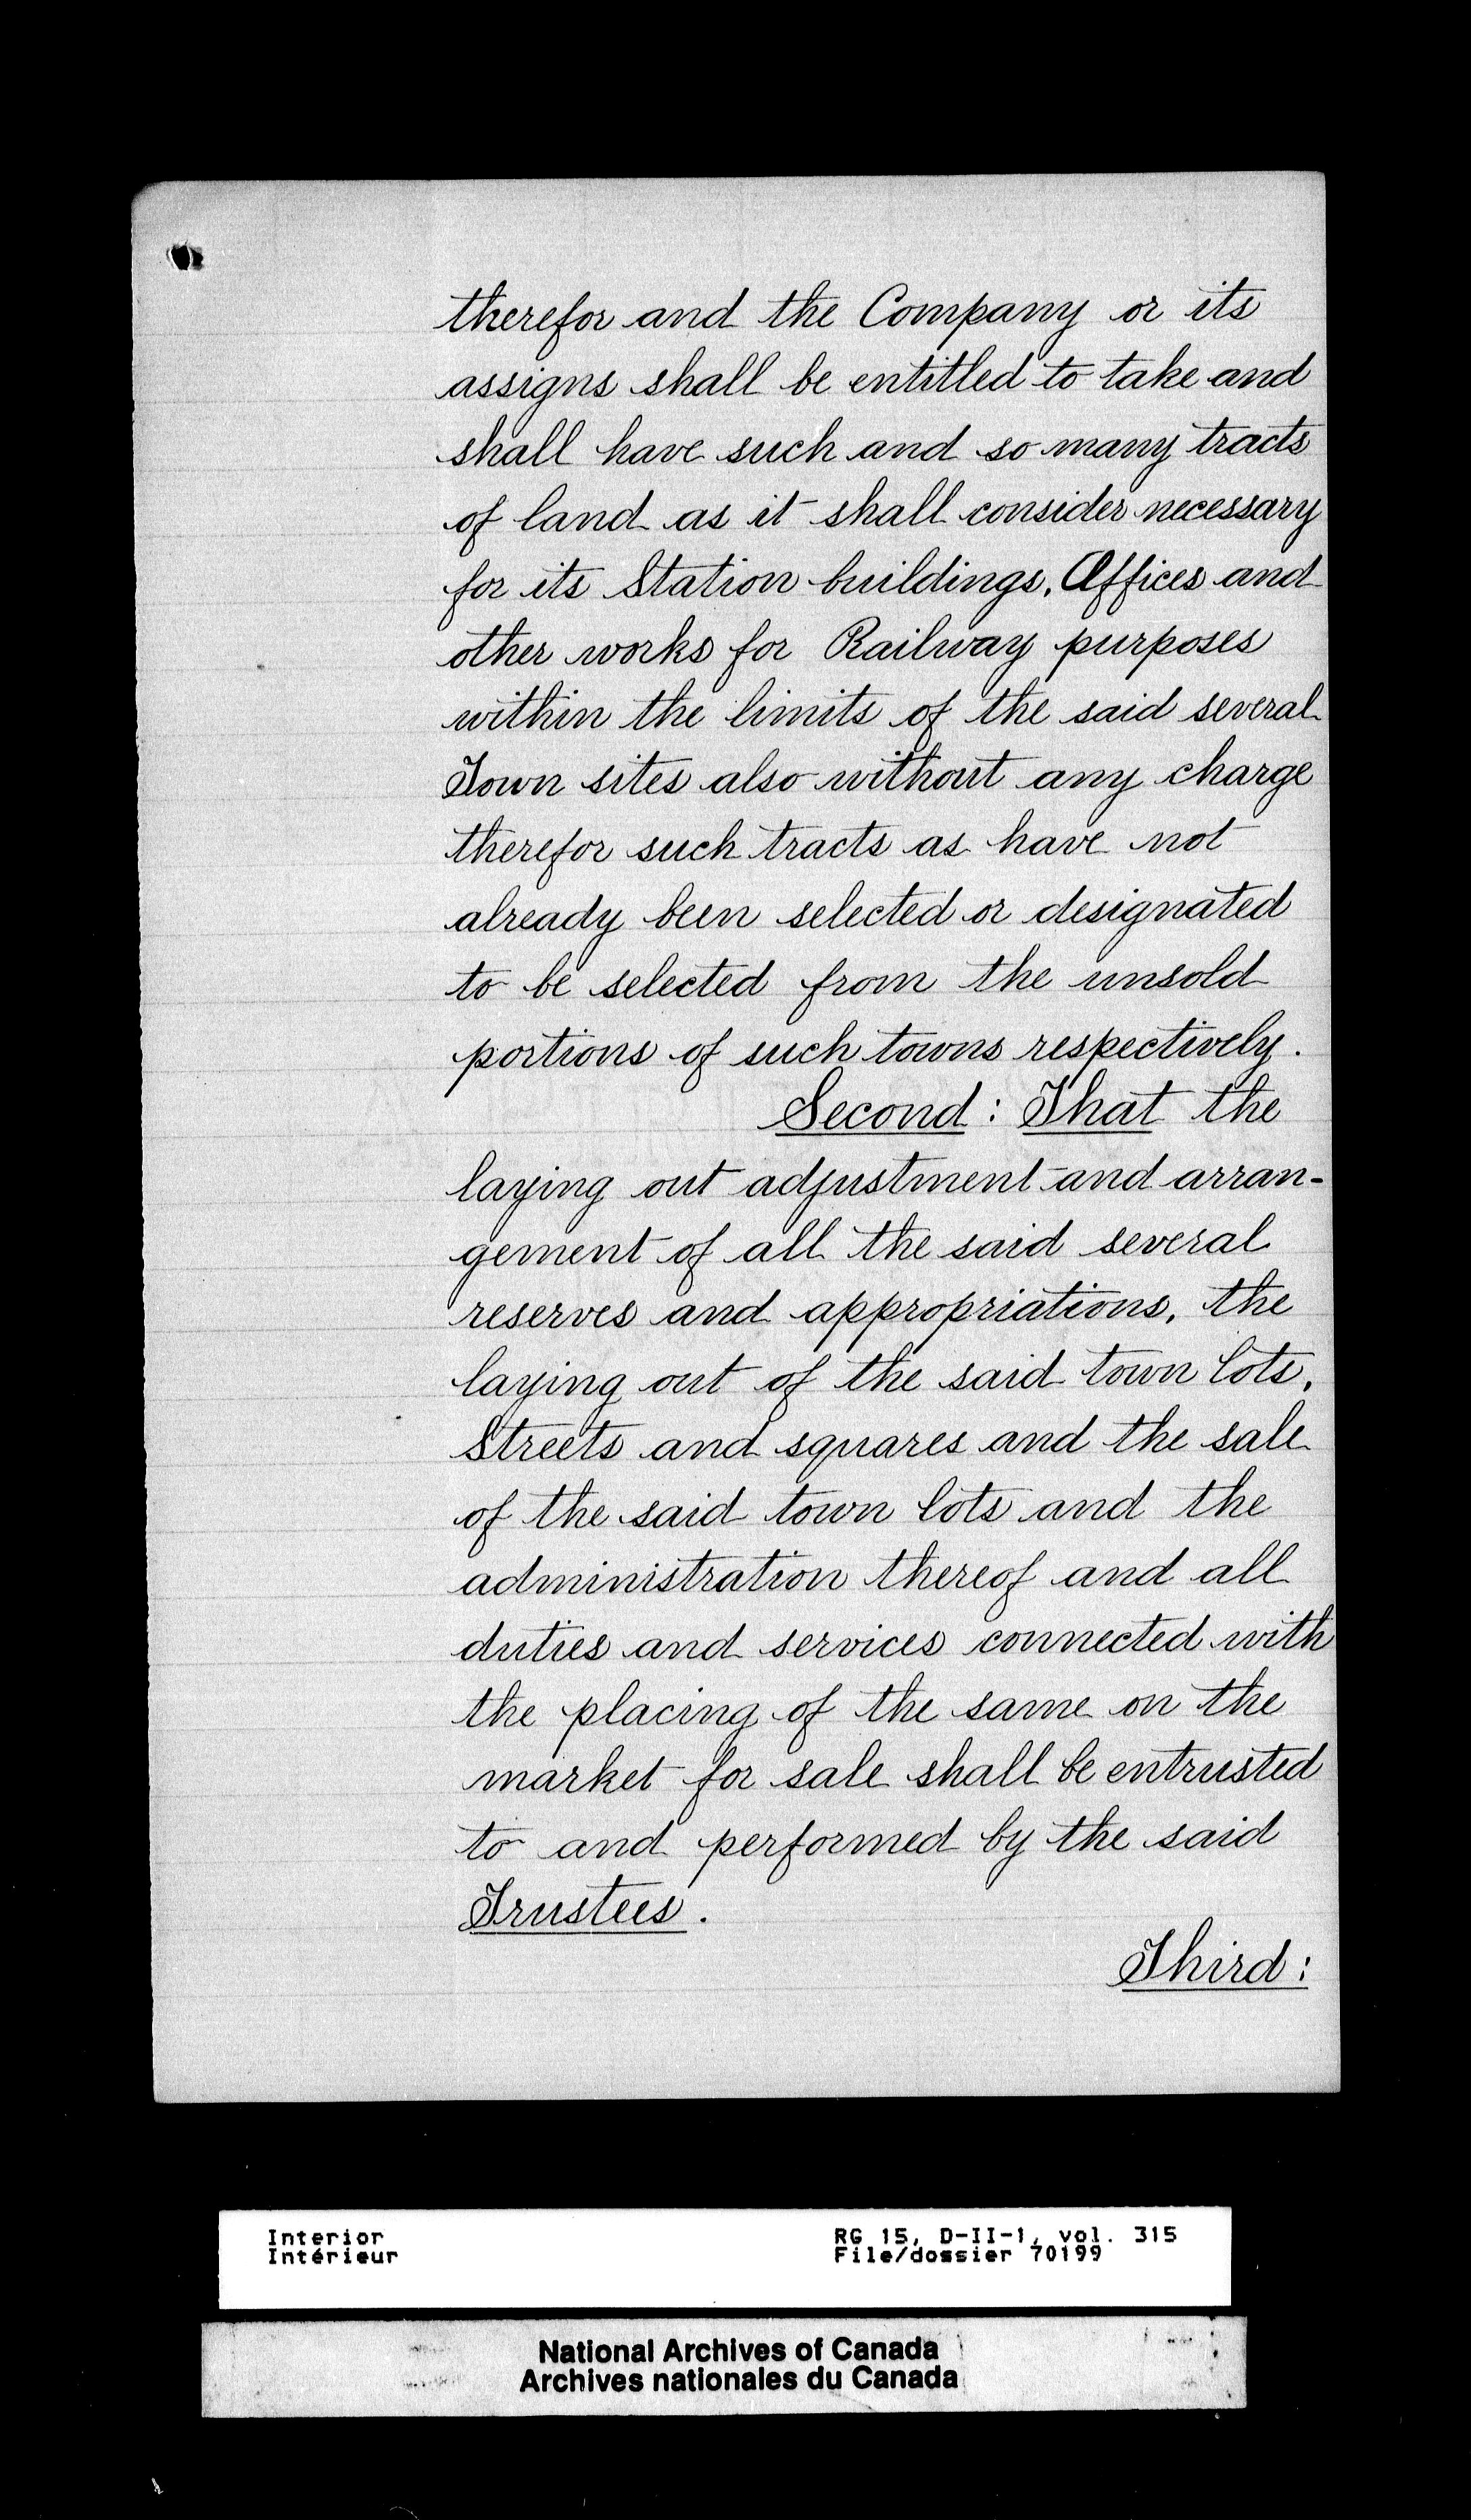 therefor and the Company or its
assigns shall be entitled to take and
shall have such and so many tracts
of land as it shall consider necessary
for its Station buildings, Offices and
other works for Railway purposes
within the limits of the said several
Town sites also without any charge
therefor such tracts as have not
already been selected or designated
to be selected from the unsold
portions of such towns respectively.
Second: That the
laying out adjustment and arran-
gement of all the said several
reserves and appropriations, the
laying out of the said town lots,
Streets and squares and the sale
of the said town lots and the
administration thereof and all
duties and services connected with
the placing of the same on the
market for sale shall be entrusted
to and performed by the said
Trustees.
Third:
Interior
Intérieur
RG 15, D-II-1, vol. 315
File/dossier 70199
National Archives of Canada
Archives nationales du Canada